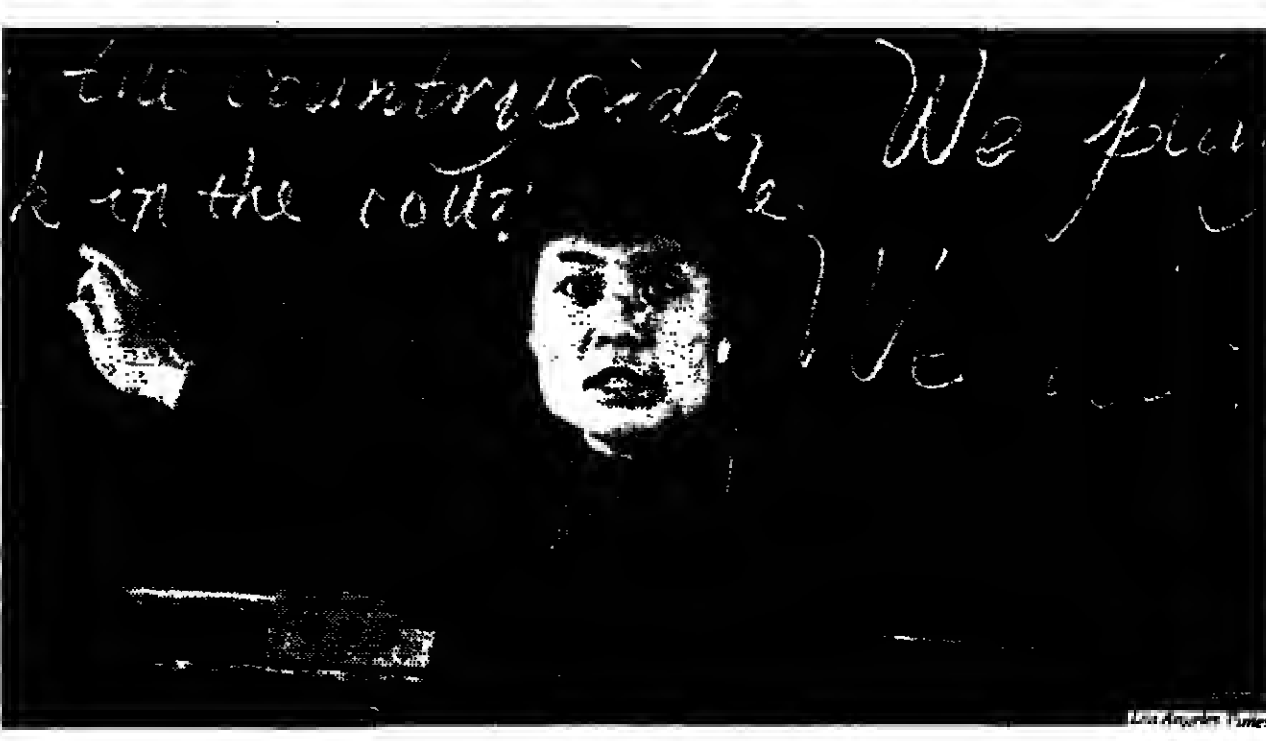 the countryside, We play
k in the cou
e.
We
Los Angeles Times